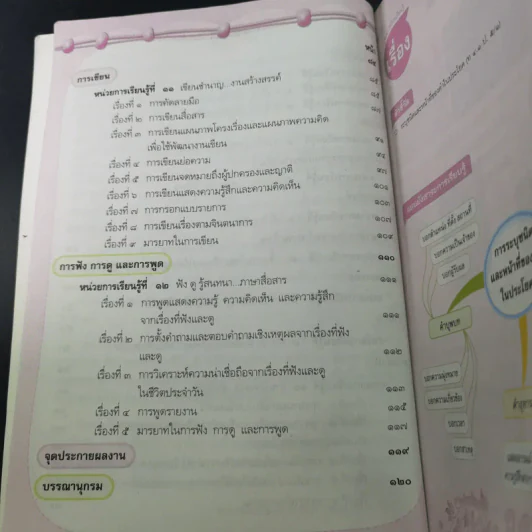 หน้า
การเขียน
หน่วยการเรียนรู้ที่ ๑๑ เขียนชำนาญ...งานสร้างสรรค์
เรื่องที่ ๑ การคัดลายมือ
เรื่องที่ ๒ การเขียนสื่อสาร
เรื่องที่ ๓ การเขียนแผนภาพโครงเรื่องและแผนภาพความคิด
เพื่อใช้พัฒนางานเขียน
เรื่องที่ ๔ การเขียนย่อความ
เรื่องที่ ๕ การเขียนจดหมายถึงผู้ปกครองและญาติ
เรื่องที่ ๖ การเขียนแสดงความรู้สึกและความคิดเห็น
เรื่องที่ ๗ การกรอกแบบรายการ ๑๐๓
เรื่องที่ ๘ การเขียนเรื่องตามจินตนาการ ๑๐๗
เรื่องที่ ๙ มารยาทในการเขียน ๑๐๙
การฟัง การดู และการพูด ๑๑๐
หน่วยการเรียนรู้ที่ ๑๒ ฟัง ดู รู้สนทนา...ภาษาสื่อสาร ๑๑๑
เรื่องที่ ๑ การพูดแสดงความรู้ ความคิดเห็น และความรู้สึก
จากเรื่องที่ฟังและดู ๑๑๑
เรื่องที่ ๒ การตั้งคำถามและตอบคำถามเชิงเหตุผลจากเรื่องที่ฟัง
และดู ๑๑๒
เรื่องที่ ๓ การวิเคราะห์ความน่าเชื่อถือจากเรื่องที่ฟังและดู
ในชีวิตประจำวัน ๑๑๓
เรื่องที่ ๔ การพูดรายงาน ๑๑๕
เรื่องที่ ๕ มารยาทในการฟัง การดู และการพูด ๑๑๗
จุดประกายผลงาน ๑๑๙
บรรณานุกรม ๑๒๐
เรื่อง
การระบุชนิด
และหน้าที่ของ
ในประโยค
คำบุพบท